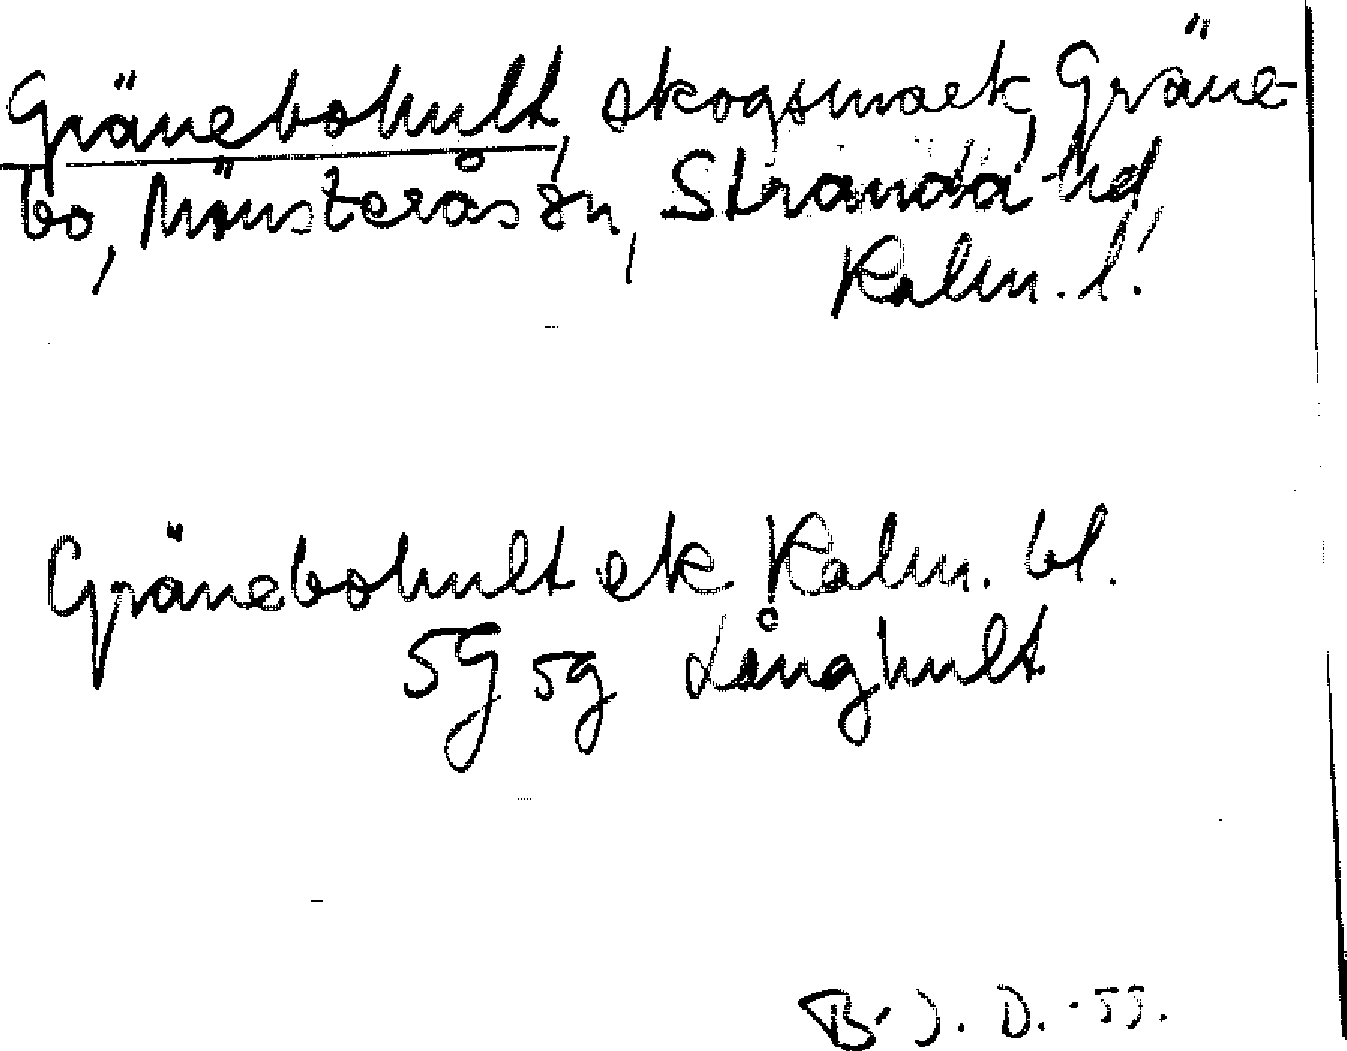 Gränebohult, skogsmark, Gräne-
bo, Mönsterås sn, Stranda hd,
Kalm. l.
Gränebohult ek. Kalm. bl.
5G 5g Långhult
B. J. D. -55.